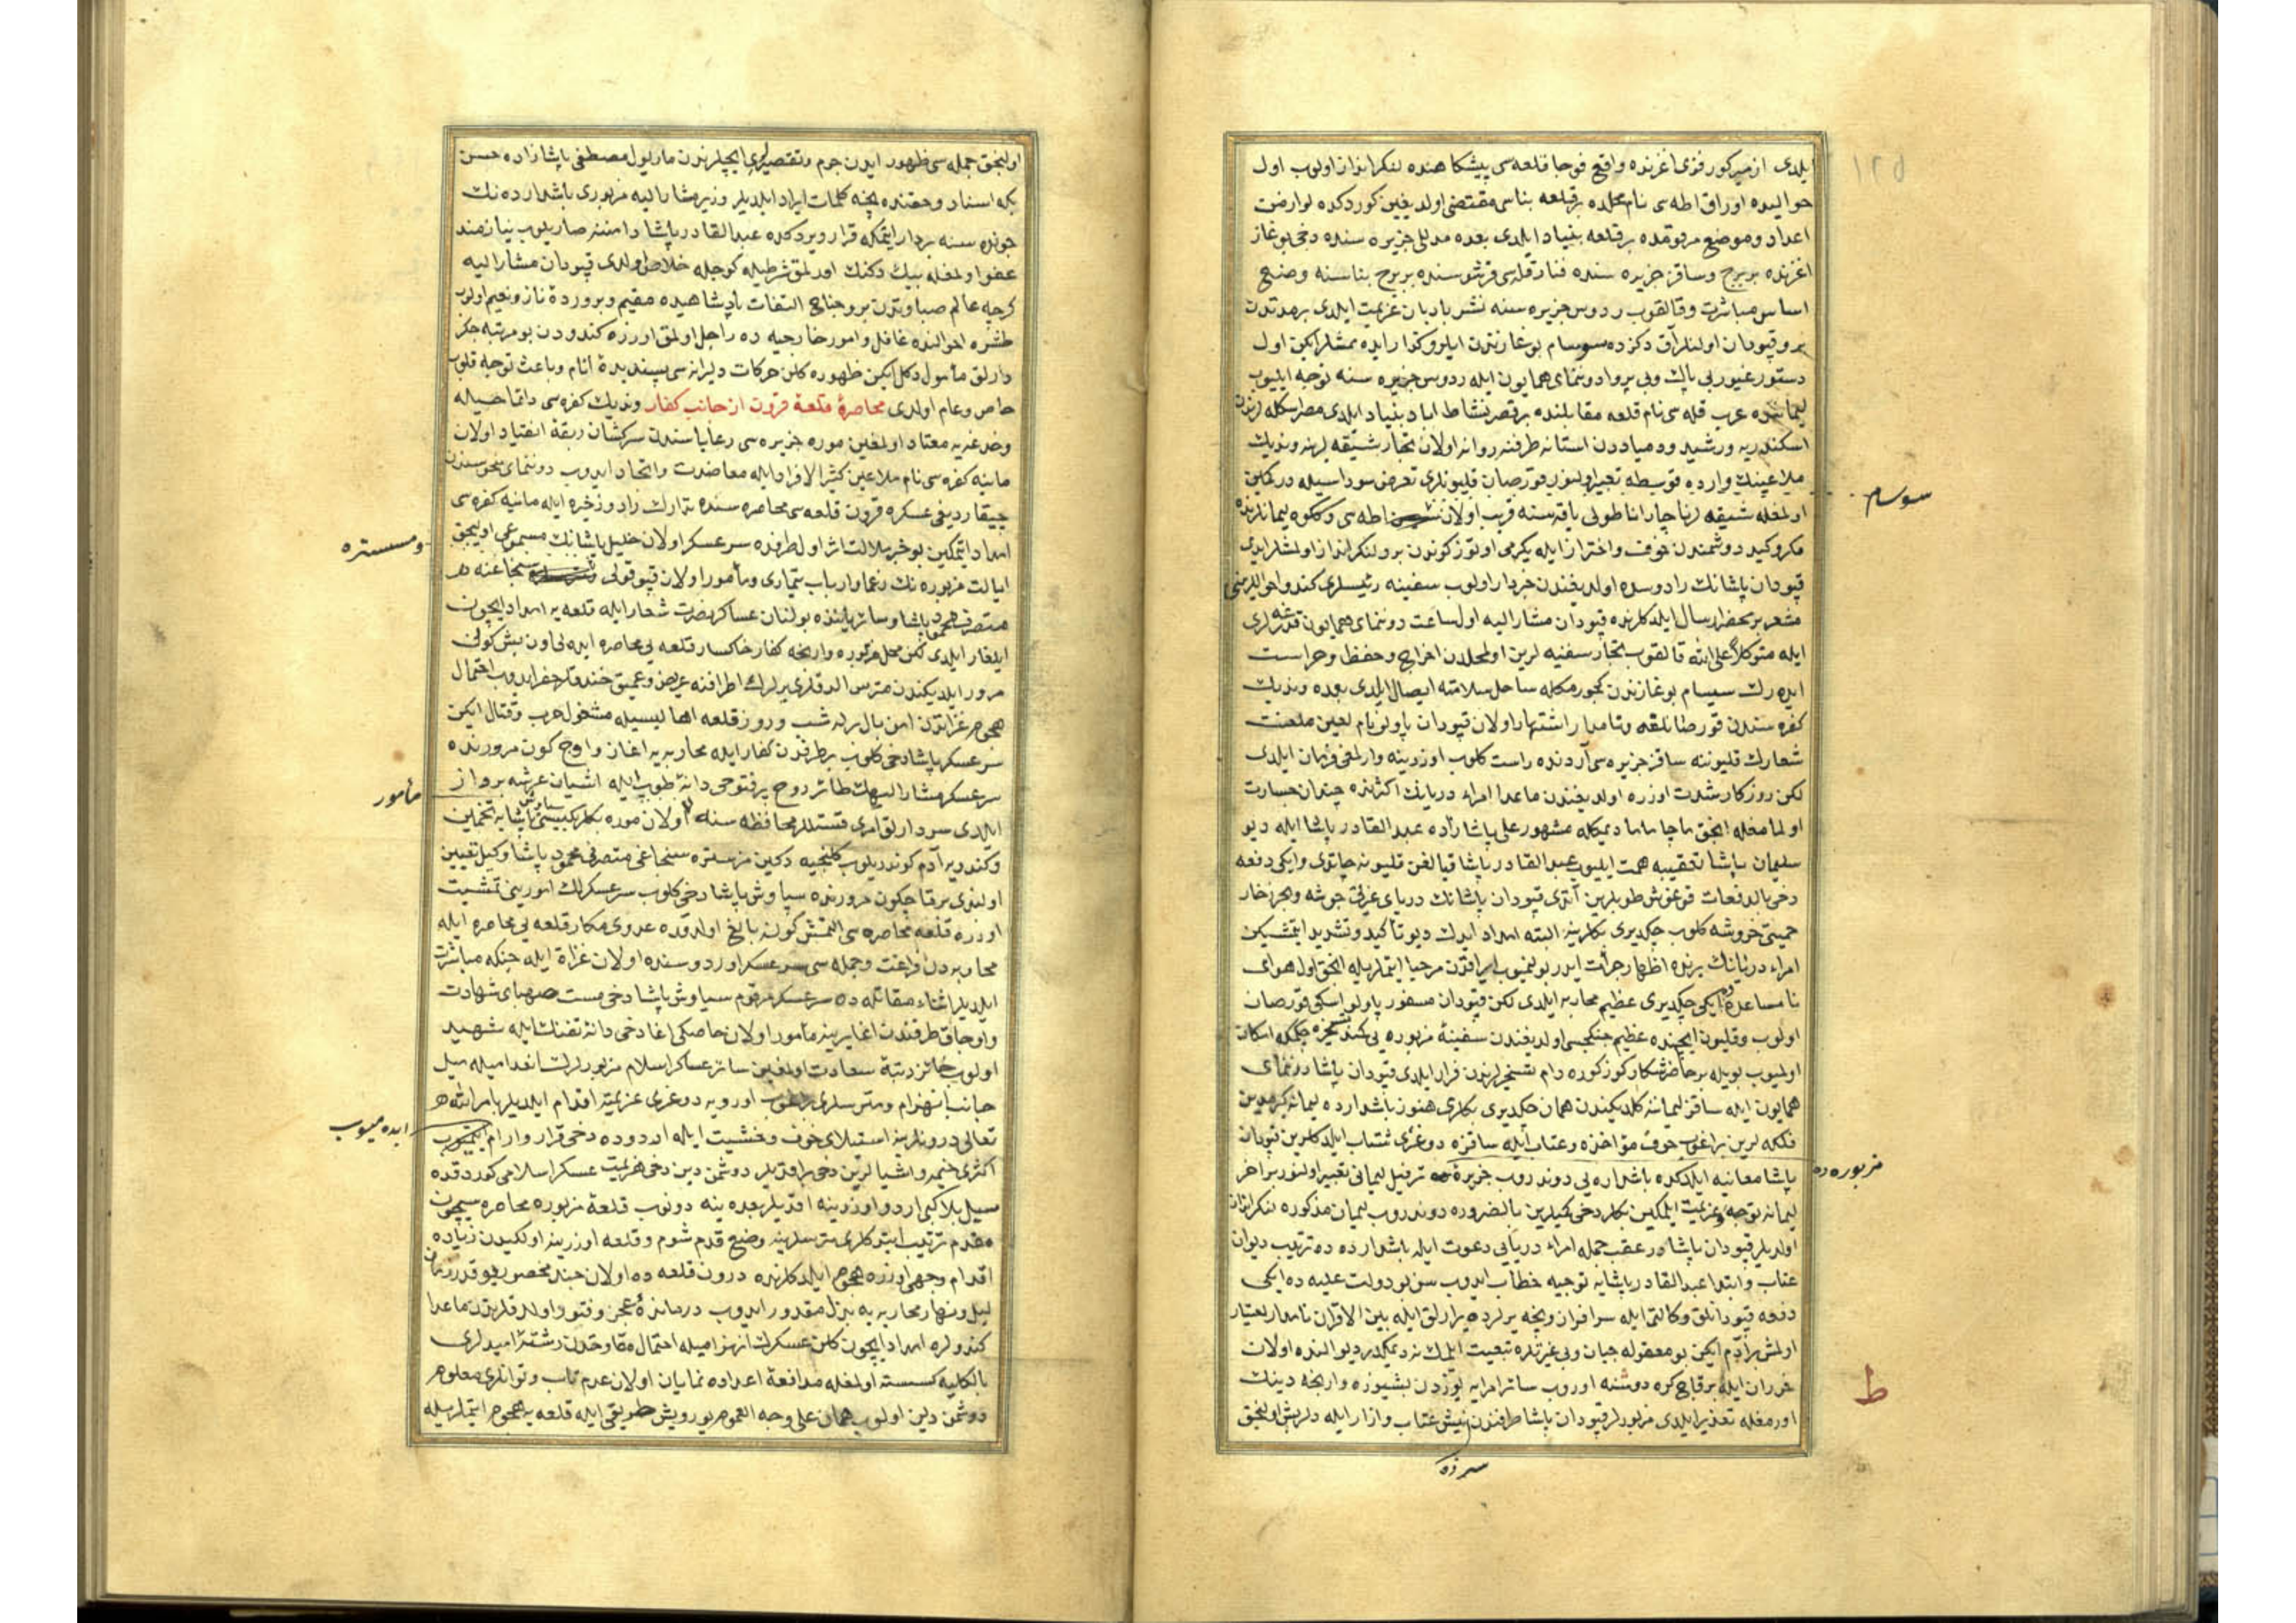 ١٢٥
ایلدی ازمیر کورفزی اغزنده واقع فوجا قلعه سی پیشکاهنده لنکرانداز اولوب اول
حوالیده اوراق اطه سی نام محلده بر قلعه بناسی مقتضی اولدیغین کوردکده لوازمن
اعداد و موضع مرقومده بر قلعه بنیاد ایلدی بعده مدللی جزیره سنده دخی بوغاز
اغزنده بر برج و ساقز جزیره سنده فنار قله سی قرشوسنده بر برج بناسنه وضع
اساس مباشرت و قالقوب ردوس جزیره سنه نشر بادبان عزیمت ایلدی بر مدتدن
برو قپودان اولنلر آق دکزده سوسام بوغازندن ایلرو کذار ایده ممشلر ایکن اول
دستور غیور بی باک و بی پروا دوننمای همایون ایله ردوس جزیره سنه توجه ایلیوب
لیماننده عرب قله سی نام قلعه مقابلنده بر قصر نشاط اباد بنیاد ایلدی مصر اسکله لرندن
اسکندریه و رشید و دمیاددن استانه طرفنه روانه اولان تجار شیقه لرینه وندیک
ملاعینک وارده قوسیطه تعبیر اولنور قورصان قلیونلری تعرض سوداسیله در کمین
اولمغله شیقه لر ناچار اناطولی یاقه سنه قریب اولان اطه سی و ککوه لیمانلرنده
مکر و کید دوشمندن خوف و احتراز ایله یکرمی اوتوز کوندن برو لنکر انداز اولمشلر ایدی
قپودان پاشانک رادوسده اولدیغندن خبردار اولوب سفینه رئیسلری کندو احواللرینی
مشعر بر محضر ارسال ایلدکلرنده قپودان مشارالیه اول ساعت دوننمای همایون قدرغه لری
ایله متوکلا علی الله قالقوب تجار سفینه لرین اول محلدن اخراج و حفظ و حراست
ایده رک سیسام بوغازندن کچورمکله ساحل سلامته ایصال ایلدی بعده وندیک
کفره سندن قورصانلقه و نامدار اشتهار اولان قپودان پاولو نام لعین ملعنت
شعارک قلیوننه ساقز جزیره سی آردنده راست کلوب اوزرینه وارلمغی فرمان ایلدی
لکن روزکار شدت اوزره اولدیغندن ماعدا امراء دریانک اکثرنده چندان جسارت
اولمامغله انجق ماجاماما دیمکله مشهور علی پاشا زاده عبد القادر پاشا ایله دیو
سلیمان پاشا تعقیبه همت ایلیوب عبد القادر پاشا قیالغن قلیونه چاتدی و ایکی دفعه
دخی بالدفعات قوغوش طوبلرین آتدی قپودان پاشانک دریای غیرتی جوشه و بحر زخار
حمیتی خروشه کلوب چکدیری بکلرینه البته امداد ایدک دیو تأکید و تشدید ایتمشیکن
امراء دریانک برنده اظهار جرأت ایدر بولنمیوب ایراقدن مرحبا ایتملریله انجق اول هوای
نامساعدده ایکی چکدیری عظیم محاربه ایلدی لکن قپودان مسفور پاولو اسکی قورصان
اولوب و قلیون ایچنده عظیم جنکجیسی اولدیغندن سفینهٔ مزبوره یی چکمکه امکان
اولمیوب بویله بر حاضر شکار کوز کوره دام تسخیرلرندن فرار ایلدی قپودان پاشا دوننمای
همایون ایله ساقز لیماننه کلدیکندن همان چکدیری بکلری هنوز باشدارده لیمانه کرمدین
فلکه لرین براغوب خوف مؤاخذه و عتاب ایله ساقزه دوغری شتاب ایلدکلرین قپودان
پاشا معاینه ایلدکده باشدارده یی دوندروب جزیرهٔ ترفیل لیمانی تعبیر اولنور بر اخر
لیمانه توجه و عزیمت ایلمکین بکلر دخی کمیلرین بالضروره دوندروب لیمان مذکوره لنکرانداز
اولدیلر قپودان پاشا در عقب جمله امراء دریایی دعوت ایله باشدارده ده ترتیب دیوان
عتاب و ابتدا عبد القادر پاشایه توجیه خطاب ایدوب سن بو دولت علیه ده ایکی
دفعه قپودانلق وکالتی ایله سرافراز و نیجه یرلرده یرارلق ایله بین الاقران نامدار بختیار
اولمش بر آدم ایکن بو مقوله جبان و بی غیرتلره تبعیت ایلمک نه دیمکدر دیو النده اولان
خزران ایله بر قاچ کره دوشنه اوروب سائر امرایه یوزدن بشیوزه وارنجه دینک
اورمغله تعذیر ایلدی مزبورلر قپودان پاشا طرفندن نیش عتاب و ازار ایله دلریش اولنجق
سوسام
مزبوره ده
ط
سرزده
اولنجق جمله سی ظهور ایدن جرم و تقصیرلری ایچلرندن ماریول مصطفی پاشا زاده حسن
بکه اسناد و حقنده نیجه کلمات ایراد ایلدیلر وزیر مشارالیه مزبوری باشدارده نک
جوندہ سنه بردار ایتمکه قرار ویردکده عبد القادر پاشا دامننه صاریلوب نیازمند
عفو اولمغله بیک دکنک اورلمق شرطیله کوجله خلاص اولدی قپودان مشارالیه
کرچه عالم صباوتدن برو جناح التفات پادشاهیده مقیم و پروردهٔ ناز و نعیم اولوب
طشره احوالنده غافل و امور خارجیه ده راجل اولمق اوزره کندودن بو مرتبه جکر
دارلق مأمول دکل ایکن ظهوره کلن حرکات دلیرانه سی پسندیدهٔ انام و باعث توجه قلوب
خاص و عام اولدی محاصرهٔ قلعهٔ قرون از جانب کفار وندیک کفره سی دائما حیله
و خدعه یه معتاد اولمغین موره جزیره سی رعایاسندن سرکشان ربقهٔ انقیاد اولان
مانیه کفره سی نام ملاعین کثیر الافراد ایله معاضدت و اتحاد ایدوب دوننمای منحوسندن
چیقاردیغی عسکره قرون قلعه سی محاصره سنده تدارک زاد و زخیره ایله مانیه کفره سی
امداد ایتمکین بو خبر ملالت اثر اول طرفده سرعسکر اولان خلیل پاشانک مسموعی اولنجق
ایالت مزبوره نک زعما و ارباب تیماری و مأمور اولان قپوقولی سنجاغنه
متصرف محمود پاشا و سائر یاننده بولنان عساکر نصرت شعار ایله قلعه یه امداد ایچون
ایلغار ایلدی لکن محل مزبوره وارنجه کفار خاکسار قلعه یی محاصره ایده لی اون بش کون
مرور ایلدیکندن متریس الدقلری یرلرک اطرافنه عریض و عمیق خندقلر حفر ایدوب احتمال
هجوم غزاتدن امن بال برله شب و روز قلعه اهالیسیله مشغول حرب و قتال ایکن
سرعسکر پاشا دخی کلوب بر طرفدن کفار ایله محاربه یه اغاز و اوچ کون مرورنده
سرعسکر مشارالیهک طائر روح پر فتوحی دانهٔ طوب ایله اشیان عرشه پرواز
ایلدی سردارلق امری قستللر محافظه سنه اولان موره بکلربکیسی سیاوش پاشایه تخمین
و کندویه آدم کوندریلوب کلنجیه دکین مزستره سنجاغی متصرفی محمود پاشا وکیل تعیین
اولندی بر قاچ کون مرورنده سیاوش پاشا دخی کلوب سرعسکرلک امورینی تمشیت
اوزره قلعه محاصره سی التمش کونه بالغ اولدقده عدوی مکار قلعه یی محاصره ایله
محاربه دن فراغت و جمله سی سرعسکر اوردوسنده اولان غزاة ایله جنکه مباشرت
ایلدیلر اثناء مقاتله ده سرعسکر مرقوم سیاوش پاشا دخی مست صهبای شهادت
و اوجاق طرفندن اغا یرینه مأمور اولان خاصکی اغا دخی دانهٔ تفنک ایله شهید
اولوب حائز رتبهٔ سعادت اولمغین سائر عساکر اسلام مزبورلرک انعدامیله میل
جانب انهزام و متریسلری براغوب اوردویه دوغری عزیمته اقدام ایلدیلر بامر الله
تعالی درونلرینه استیلای خوف و خشیت ایله اردوده دخی قرار و ارام
اکثری خیمه و اشیالرین دخی براقدیلر دوشمن دین دخی هزیمت عسکر اسلامی کوردقده
سیل بلا کبی اردو اوزرینه اقدیلر بعده ینه دونوب قلعهٔ مزبوره محاصره سیچون
مقدم ترتیب ایتدکلری متریسلرینه وضع قدم شوم و قلعه اوزرینه اولکیدن زیاده
اقدام وجهی اوزره هجوم ایلدکلرنده درون قلعه ده اولان چند محصور
لیل و نهار محاربه یه بذل مقدور ایدوب درماندهٔ عجز و فتور اولدقلرندن ماعدا
کندولره امداد ایچون کلن عسکرک انهزامیله احتمال مقاومتدن رشتهٔ امیدلری
بالکلیه کسسته اولمغله مدافعهٔ اعداده نمایان اولان عدم تاب و توانلری معلوم
دوشمن دین اولوب همان علی وجه العموم یورویش طریقی ایله قلعه یه هجوم ایتملریله
ومسستره
مأمور
ایده میوب